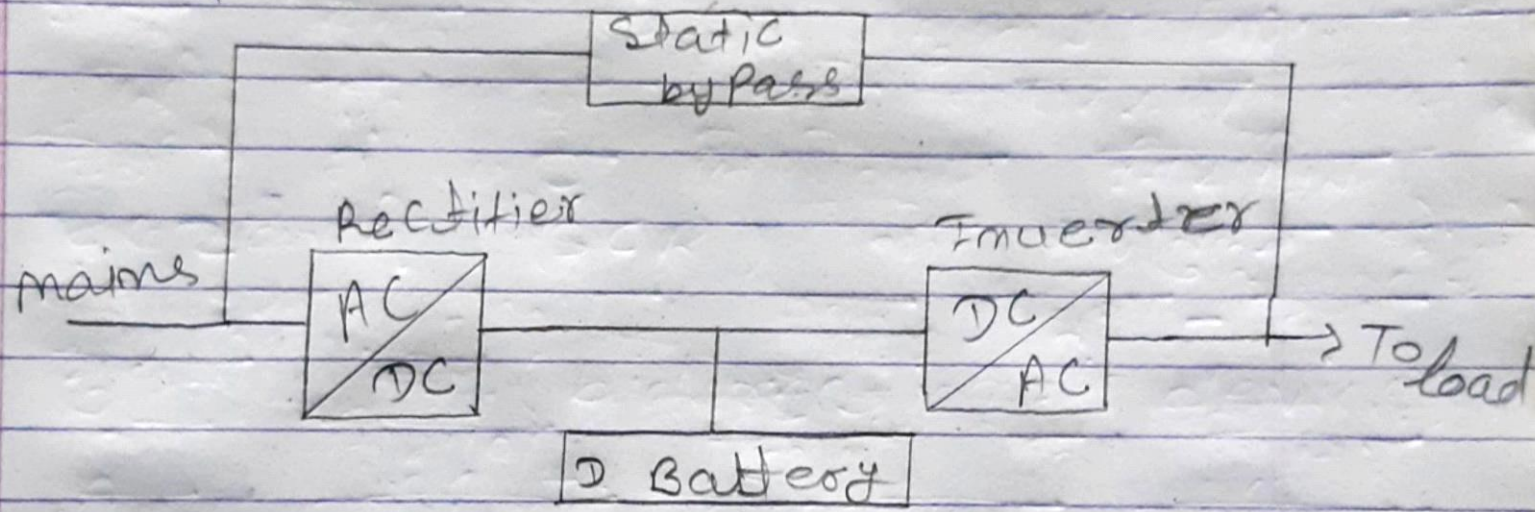 Static
bypass
Rectifier
Inverter
mains
AC
DC
DC
AC
To
load
D Battery